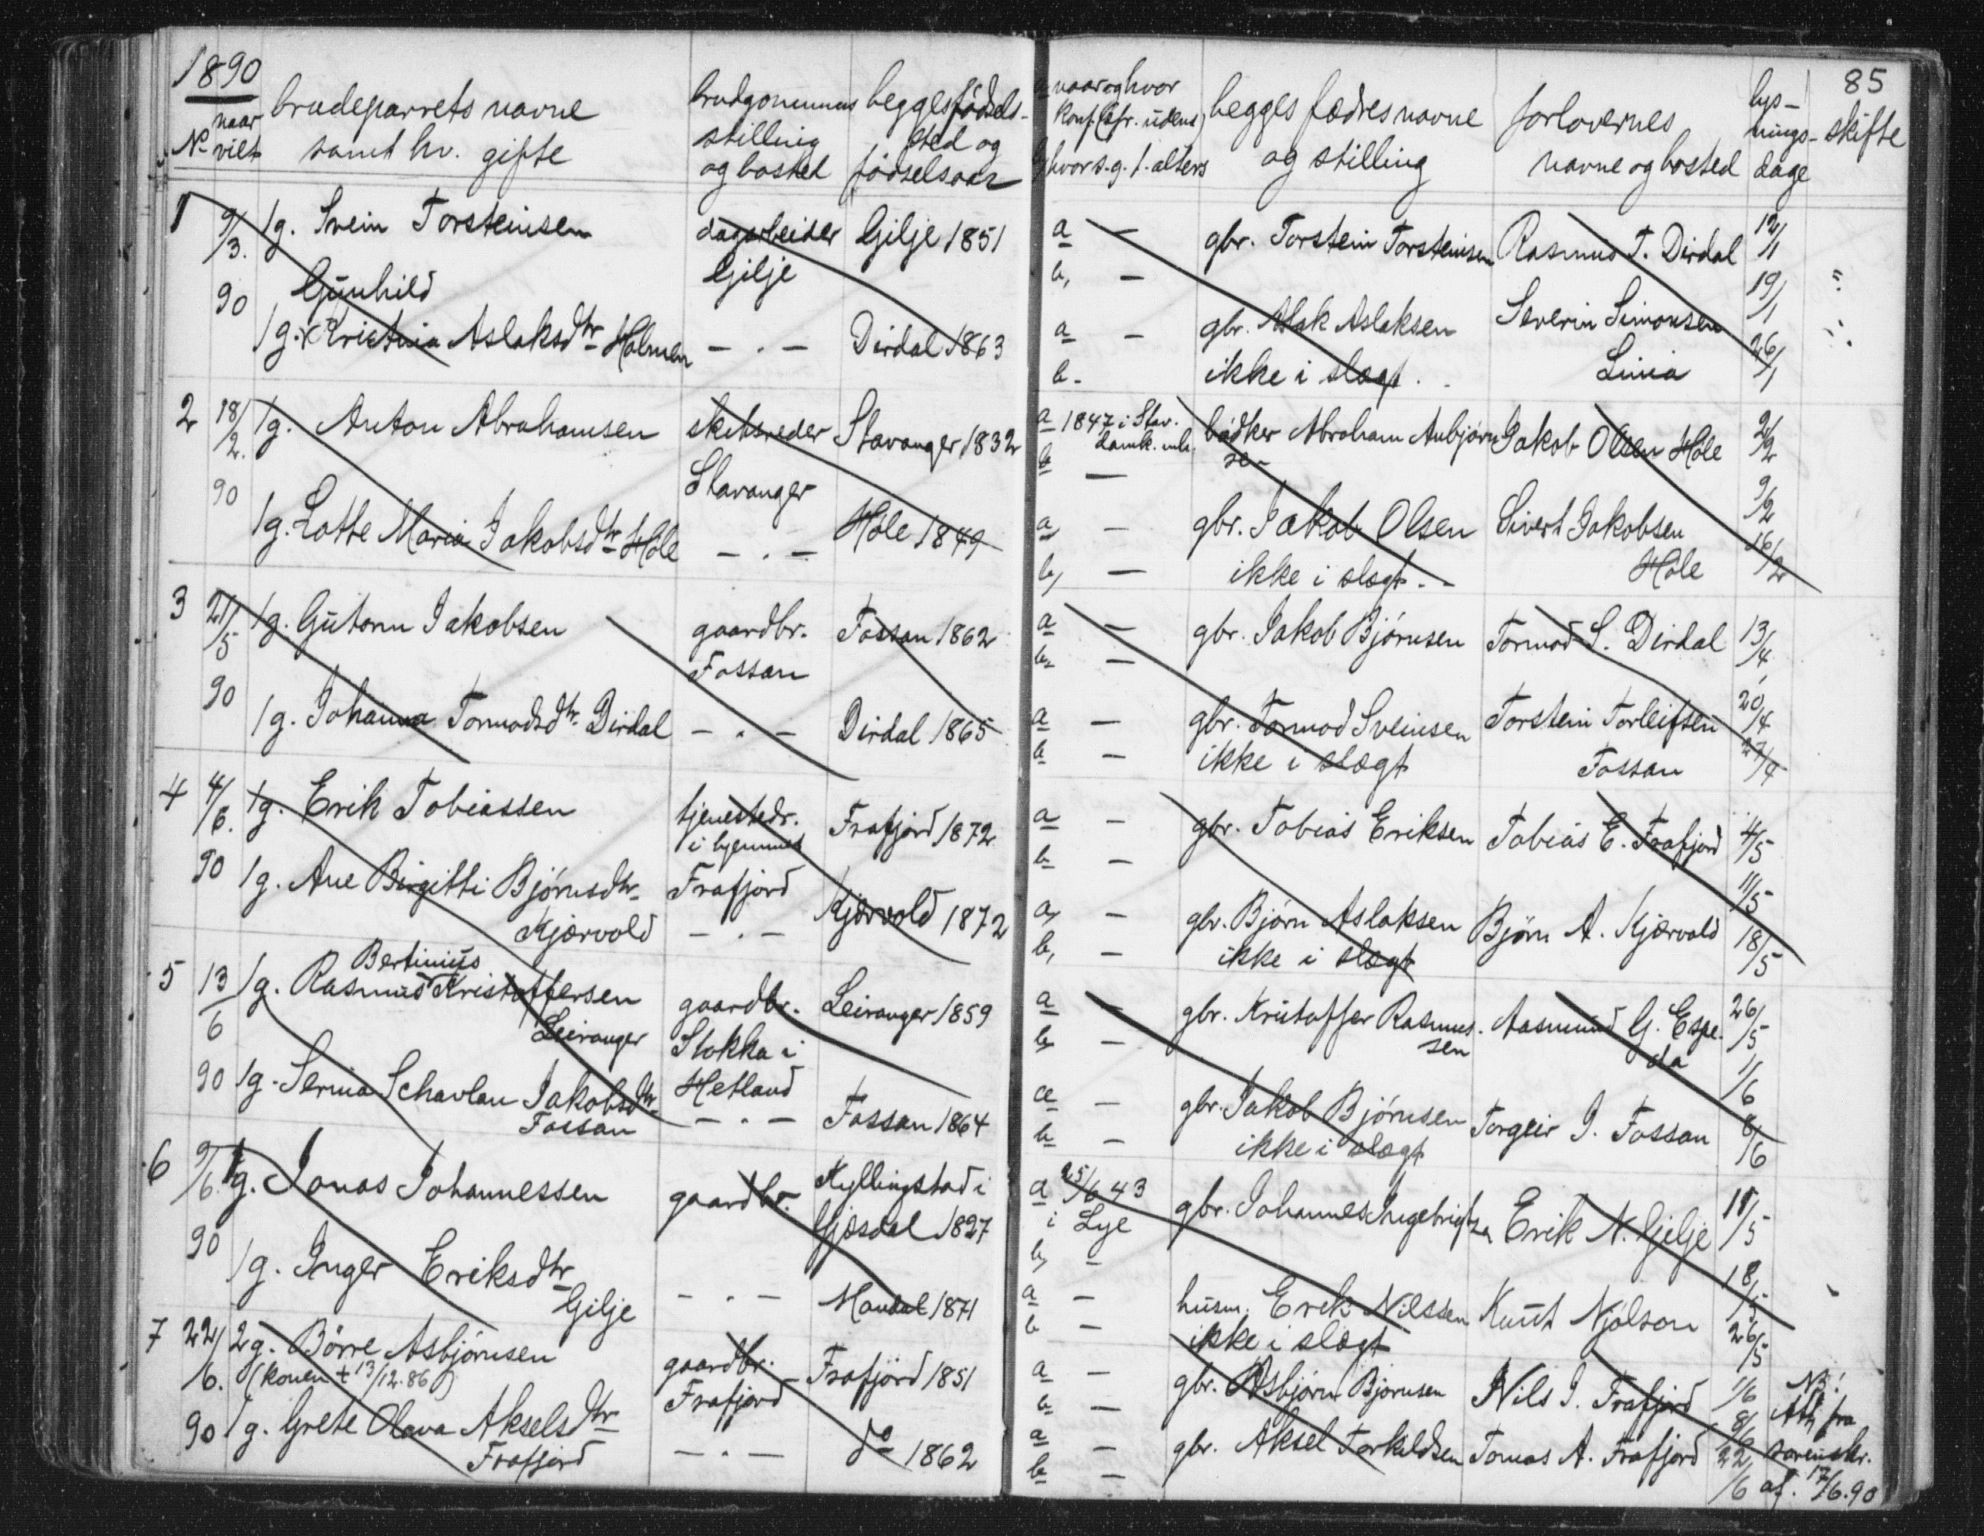 1890
85
No naar viet
brudeparrets navne
samt hv. gifte
brudgommens
stilling
og bosted
begges fødsels-
sted og
fødselsaar
a naar og hvor
konf.
hvor s. g. t. alters
begges fædres navne
og stilling
forlovernes
navne og bosted
lys-
nings-
dage
skifte
1 9/3. 90
1g. Svein Torsteinsen
Gunhild
1g. Kristina Aslaksdtr Holmen
dagarbeider
Gilje
— . —
Gilje 1851
Dirdal 1863
a —
b, —
a —
b -
gbr. Torstein Torsteinsen
gbr. Aslak Aslaksen
ikke i slægt.
Rasmus T. Dirdal
Severin Simonsen
Linia
12/1
19/1
26/1
2 18/2. 90
1g. Anton Abrahamsen
1g. Lotte Maria Jakobsdtr Høle
skibsreder
Stavanger
— . —
Stavanger 1832
Høle 1849
a 1847 i Stav.
domk. mh.
b —
a, —
b, —
bødker Abraham Anbjørn
sen
gbr. Jakob Olsen
ikke i slægt.
Jakob Olsen Høle
Sivert Jakobsen
Høle
2/2
9/2
16/2
3 21/5 90
1g. Gutorm Jakobsen
1g. Johanna Tormodsdtr. Dirdal
gaardbr.
Fossan
— . —
Fossan 1862
Dirdal 1865
a —
b —
a —
b —
gbr. Jakob Bjørnsen
gbr. Tormod Sveinsen
ikke i slægt
Tormod S. Dirdal
Torstein Torleifsen
Fossan
13/4
20/4
27/4
4 4/6. 90
1g. Erik Tobiassen
1g. Ane Birgitti Bjørnsdtr
Kjærvold
tjenestedr.
i hjemmet
Frafjord
— . —
Frafjord 1872
Kjærvold 1872
a —
b —
a, —
b, —
gbr. Tobias Eriksen
gbr. Bjørn Aslaksen
ikke i slægt
Tobias E. Frafjord
Bjørn A. Kjærvold
4/5
11/5
18/5
5 13/6 90
Bertinius
1g. Rasmus Kristoffersen
Leiranger
1g. Serina Schavlan Jakobsdtr
Fossan
gaardbr.
Stokka i
Hetland
— . —
Leiranger 1859
Fossan 1864
a —
b —
a —
b —
gbr. Kristoffer Rasmus-
sen
gbr. Jakob Bjørnsen
ikke i slægt
Aasmund G. Espe-
da
Torgeir J. Fossan
26/5
1/6
8/6
6 9/6. 90
1g. Jonas Johannessen
1g. Inger Eriksdtr
Gilje
gaardbr.
— . —
Kyllingstad i
Gjesdal 1827
Mandal 1871
a 25/6 43
i Lye
b, —
a —
b —
gbr. Johannes Ingebrigtsen
husm. Erik Nilssen
ikke i slægt
Erik N. Gilje
Knut Njølson
11/5
18/5
26/5
7 22/6. 90
2g. Børre Asbjørnsen
(konen + 13/12.86)
1g. Grete Olava Akselsdtr
Frafjord
gaardbr.
Frafjord
— . —
Frafjord 1851
do 1862
a —
b —
a —
b —
gbr. Asbjørn Bjørnsen
gbr. Aksel Torkildsen
Nils J. Frafjord
Tomas A. Frafjord
1/6
8/6
22/6
NB!
Att. fra
sorenskr.
af. 17/6.90